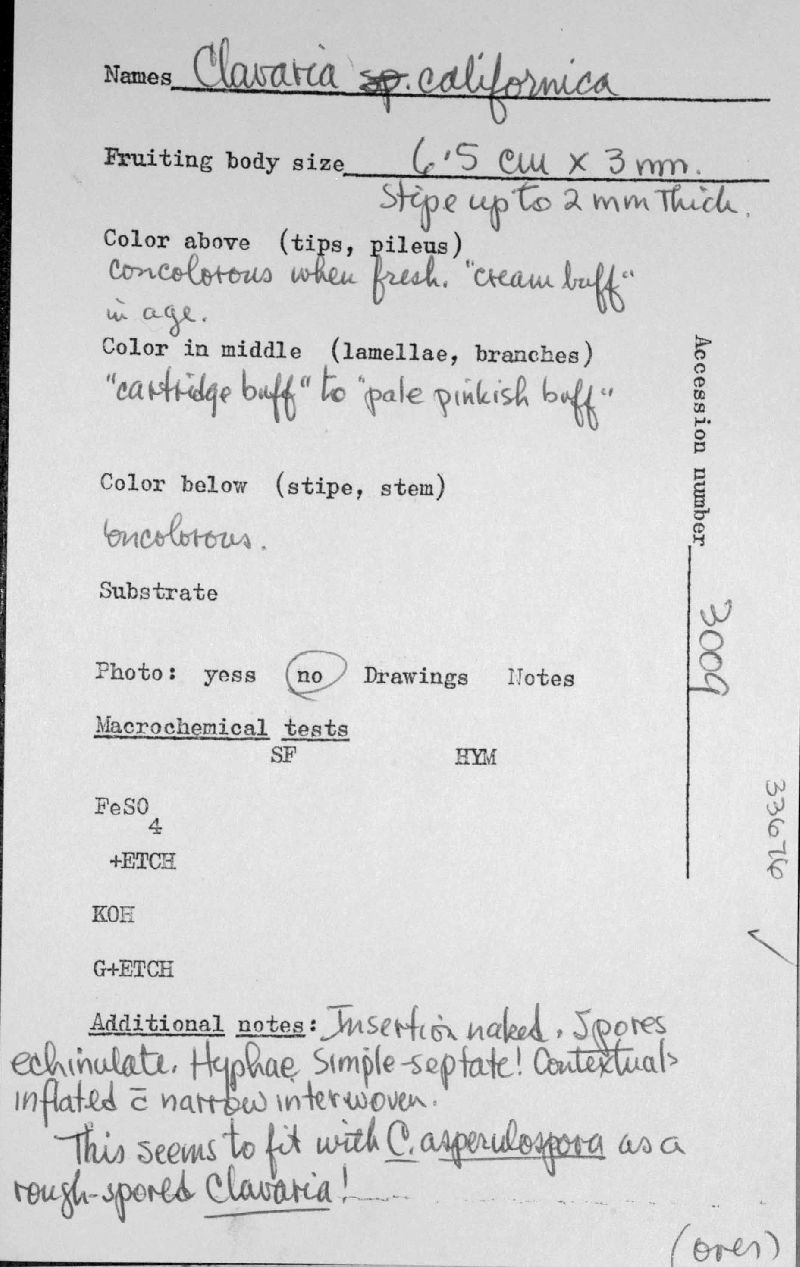 Names Clavaria sp. californica
Fruiting body size 6.5 cm x 3 mm.
Stipe up to 2 mm thick.
Color above (tips, pileus)
concolorous when fresh. "cream buff"
in age.
Color in middle (lamellae, branches)
"cartridge buff" to "pale pinkish buff"
Color below (stipe, stem)
concolorous.
Substrate
Photo: yess no Drawings Notes
Macrochemical tests
SF HYM
FeSO
4
+ETCH
KOH
G+ETCH
Additional notes: Insertion naked. Spores
echinulate. Hyphae simple-septate! Contextuals
inflated c̄ narrow interwoven.
This seems to fit with C. asperulospora as a
rough-spored Clavaria!
(over)
Accession number 3009
33676